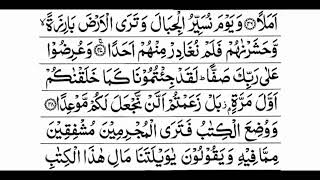 اَمَلًا ﴿۴۶﴾ وَيَوْمَ نُسَيِّرُ الْجِبَالَ وَتَرَى الْاَرْضَ بَارِزَةً ۙ
وَّحَشَرْنٰهُمْ فَلَمْ نُغَادِرْ مِنْهُمْ اَحَدًا ﴿۴۷﴾ وَعُرِضُوْا
عَلٰى رَبِّكَ صَفًّا ؕ لَقَدْ جِئْتُمُوْنَا كَمَا خَلَقْنٰكُمْ
اَوَّلَ مَرَّةٍۭ ؗ بَلْ زَعَمْتُمْ اَلَّنْ نَّجْعَلَ لَكُمْ مَّوْعِدًا ﴿۴۸﴾
وَوُضِعَ الْكِتٰبُ فَتَرَى الْمُجْرِمِيْنَ مُشْفِقِيْنَ
مِمَّا فِيْهِ وَيَقُوْلُوْنَ يٰوَيْلَتَنَا مَالِ هٰذَا الْكِتٰبِ